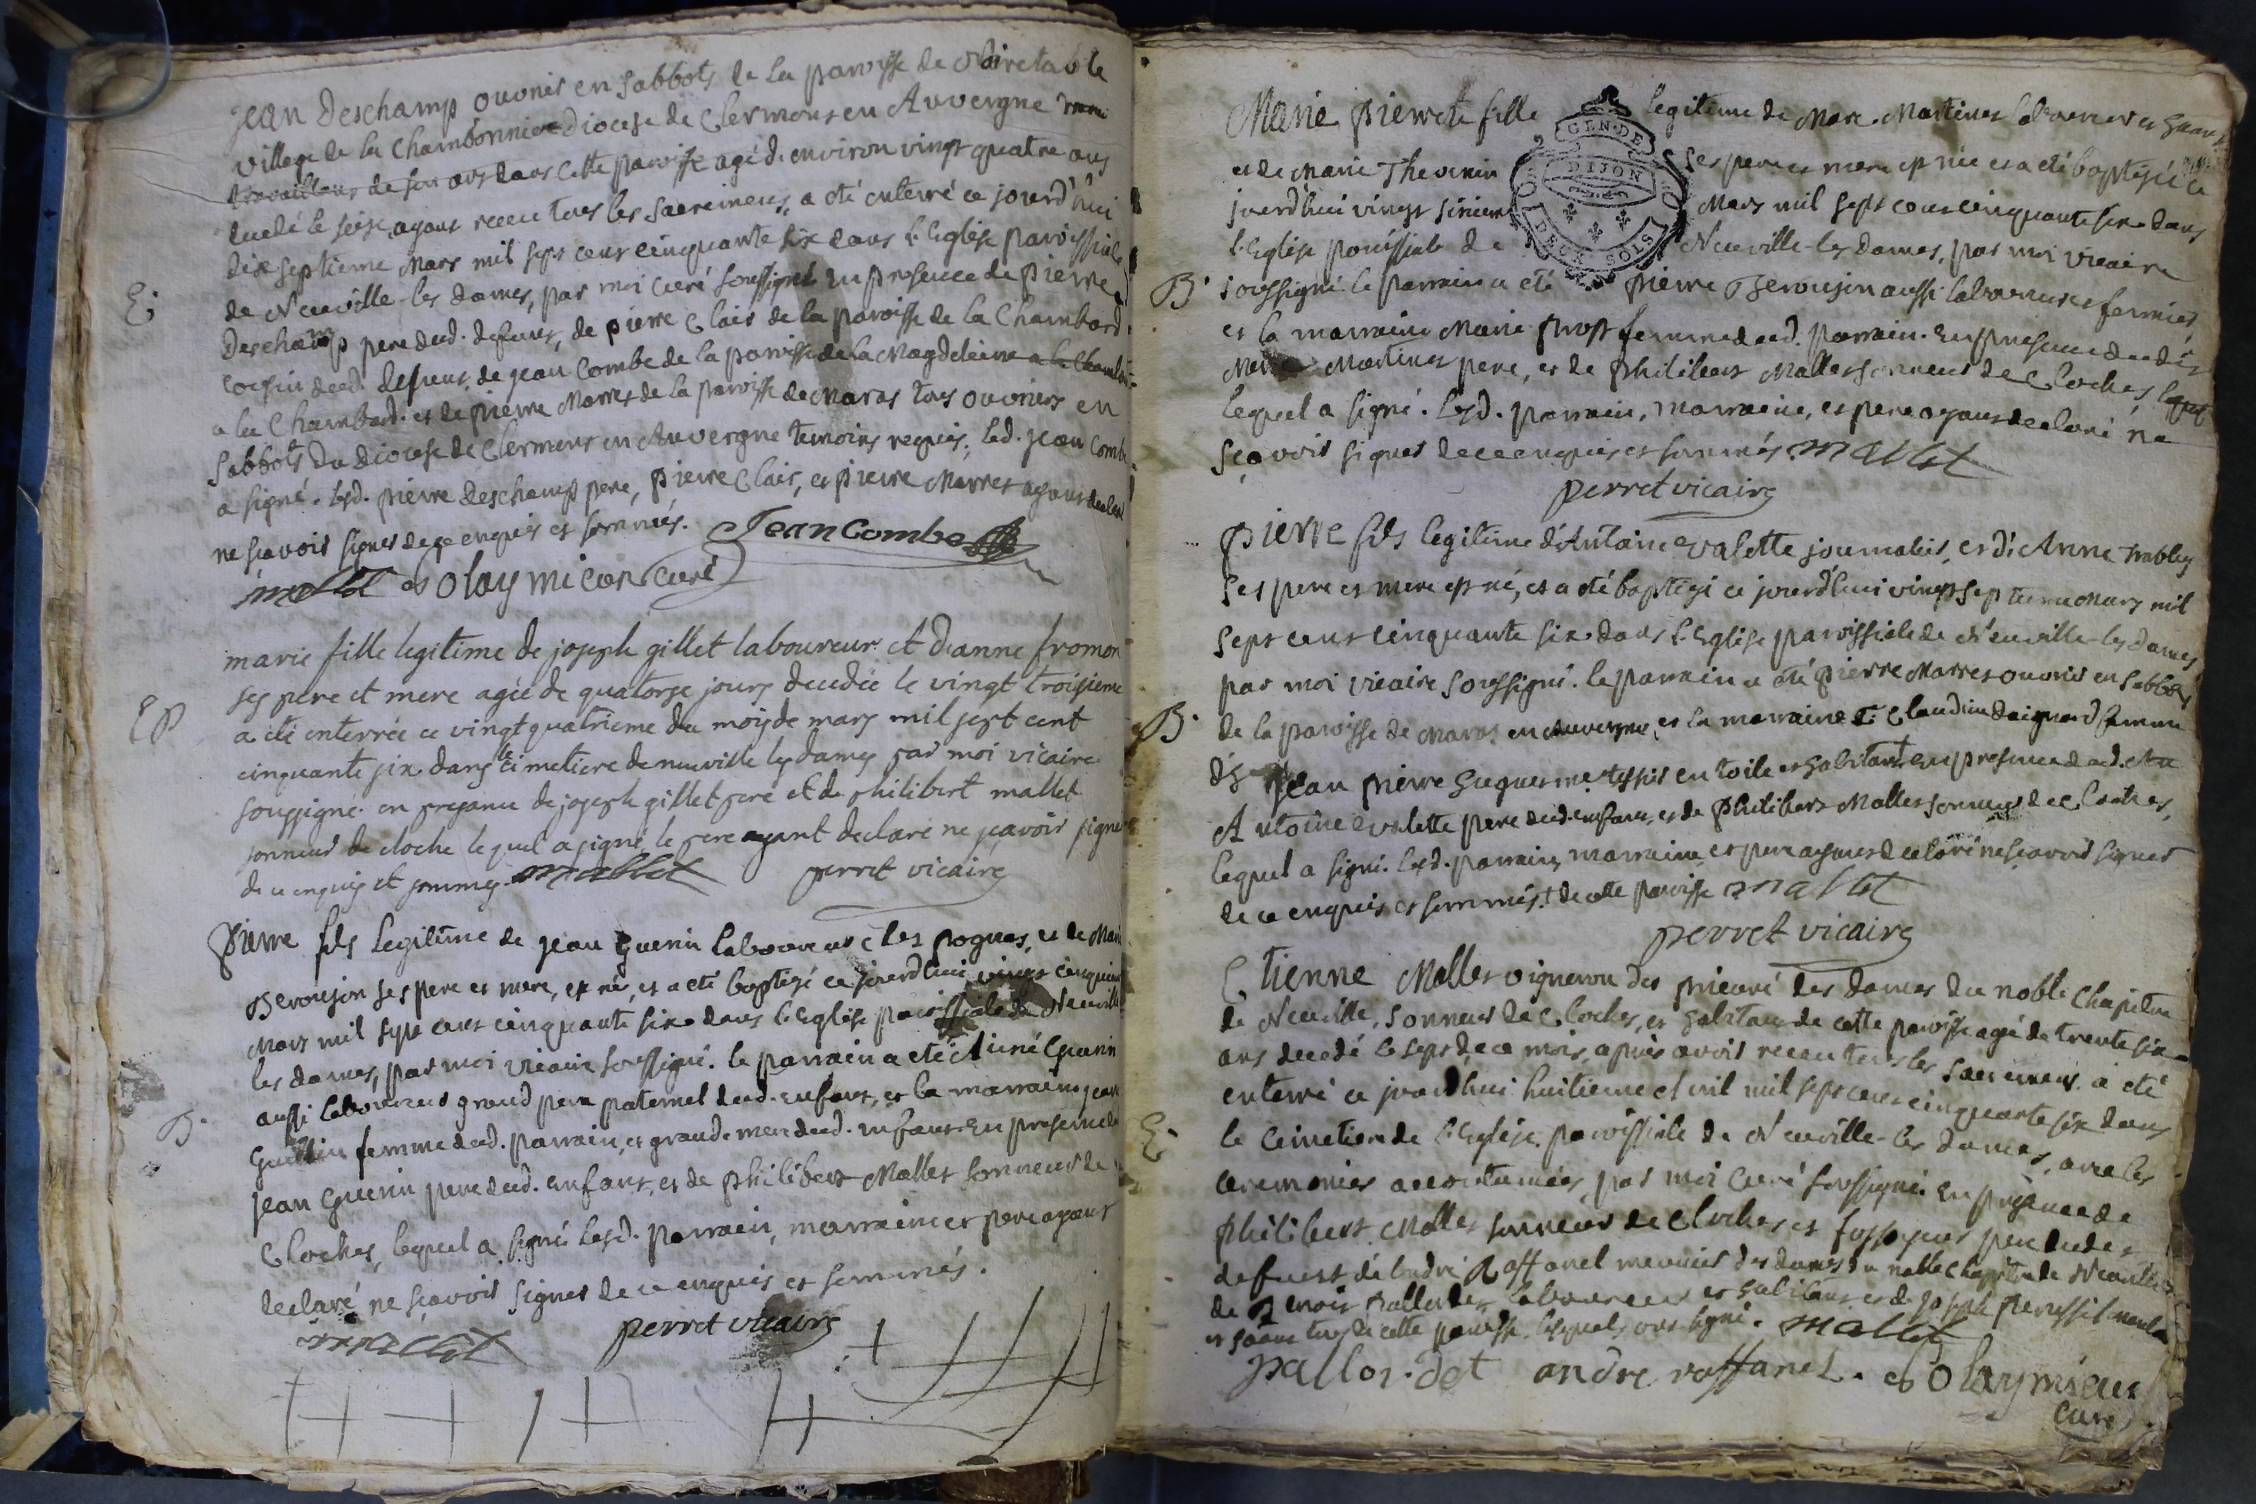 Jean Deschamp ouvrier en Sabbots de la paroisse de Noiretable
village de la Chambonniere Diocese de Clermont en Auvergne
travaillant de son art dans Cette paroisse agé d'environ vingt quatre ans
decedé le seize, ayant receu tous les Sacremens, a eté enterré ce jourd'hui
dix septieme Mars mil sept cent cinquante six dans l'Eglise paroissiale
de Neuville-les dames, par moi curé soussigné. En presence de pierre
E.
Deschamp pere dud. defunt, de pierre Clair de la paroisse de la Chambard
cousin dud. defunt, de jean Combe de la paroisse de la Magdeleine
a la Chambard. et de pierre Marret de la paroisse de Maras tous ouvriers en
Sabbots du diocese de Clermont en Auvergne temoins requis. led. jean Combe
a signé. lesd. pierre deschamp pere, pierre Clair, et pierre Marret ayant declaré
ne scavoir signer de ce enquis et sommés. Jean Combe
mallet curé
marie fille legitime de joseph gillet laboureur et d'anne fromon
ses pere et mere agée de quatorze jours decedée le vingt troisieme
EP
a eté enterrée ce vingt quatrieme du mois de mars mil sept cent
cinquante six dans le cimetiere de neuville les dames par moi vicaire
soussigné. en presence de joseph gillet pere et de philibert mallet
sonneur de cloche lequel a signé, le pere ayant declaré ne scavoir signer
de ce enquis et sommés. mallet perret vicaire
pierre fils legitime de jean guerin laboureur les pognes, et de Marie
Beroujon ses pere et mere, est né, et a eté baptizé ce jourd'hui vingt cinquieme
Mars mil sept cent cinquante six dans l'Eglise paroissiale de Neuville
les dames, par moi vicaire soussigné. le parrain a eté Guerin
aussi laboureur grand pere paternel dud. enfant, et la marraine jeane
B.
femme dud. parrain, et grande mere dud. enfant. En presence de
jean Guerin pere dud. enfant, et de philibert Mallet sonneur de
Cloches, lequel a signé lesd. parrain, marraine et pere ayant
declaré ne scavoir signer de ce enquis et sommés.
mallet perret vicaire
Marie pierrete fille legitime de Marc Martinet laboureur et
GEN. DE
DIJON
DEUX SOLS
et de Marie Thevenin ses pere et mere est née et a eté baptizée ce
jourd'hui vingt sixieme Mars mil sept cent cinquante six dans
l'Eglise paroissiale de Neuville-les dames, par moi vicaire
B.
soussigné. le parrain a eté pierre Beroujon aussi laboureur et fermier
et la marraine Marie prost femme dud. parrain. En presence dud.
Martinet pere, et de philibert Mallet sonneur de Cloches
lequel a signé. lesd. parrain, marraine, et pere ayant declaré ne
scavoir signer de ce enquis et sommés. mallet
perret vicaire
pierre fils legitime d'Antoine valette journalier, et d'Anne
ses pere et mere est né, et a eté baptizé ce jourd'hui vingt septieme Mars mil
sept cent cinquante six dans l'Eglise paroissiale de Neuville-les dames
par moi vicaire soussigné. le parrain a eté pierre Marret ouvrier en sabbots
B.
de la paroisse de Maras en Auvergne, et la marraine Claudine femme
de Jean pierre tissier en toile et habitant. en presence dud.
Antoine valette pere dud. enfant, et de philibert Mallet sonneur de Cloches,
lequel a signé. lesd. parrain, marraine et pere ayant declaré ne scavoir signer
de ce enquis et sommés. de cette paroisse mallet
perret vicaire
Etienne Mallet vigneron des prieuré des dames du noble Chapitre
de Neuville, sonneur de Cloches, et habitant de cette paroisse agé de trente six
ans decedé le sept de ce mois, apres avoir receu tous les sacremens a eté
enterré ce jourd'hui huitieme avril mil sept cent cinquante six dans
E.
le cimetiere de l'Eglise paroissiale de Neuville-les dames, avec les
ceremonies accoutumées, par moi Curé soussigné. En presence de
philibert Mallet sonneur de Cloches et fossoyeur pere dudit
defunt d'andré Raffanel meunier des dames du noble Chapitre de Neuville
de pallordet laboureur et habitant et de joseph
et habitans de cette paroisse, lesquels ont signé. mallet
pallordet andre raffanel.
curé